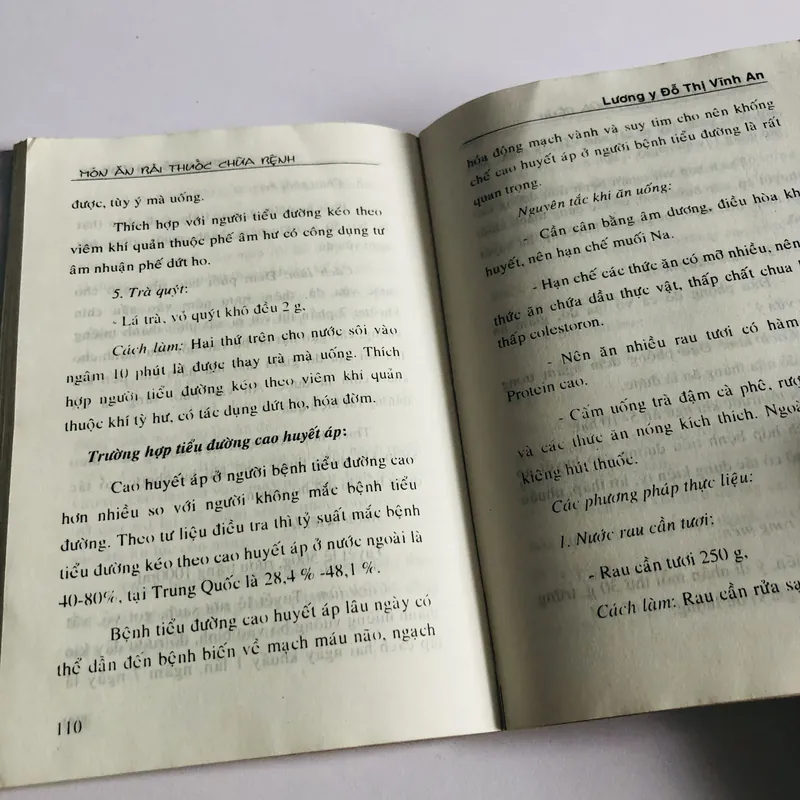 MÓN ĂN BÀI THUỐC CHỮA BỆNH
được, tùy ý mà uống.
Thích hợp với người tiểu đường kéo theo
viêm khí quản thuộc phế âm hư có công dụng tư
âm nhuận phế dứt ho.
5. Trà quýt:
- Lá trà, vỏ quýt khô đều 2 g,
Cách làm: Hai thứ trên cho nước sôi vào
ngâm 10 phút là được thay trà mà uống. Thích
hợp người tiểu đường kéo theo viêm khi quản
thuộc khí tỳ hư, có tác dụng dứt ho, hóa đờm.
Trường hợp tiểu đường cao huyết áp:
Cao huyết áp ở người bệnh tiểu đường cao
hơn nhiều so với người không mắc bệnh tiểu
đường. Theo tư liệu điều tra thì tỷ suất mắc bệnh
tiểu đường kéo theo cao huyết áp ở nước ngoài là
40-80%, tại Trung Quốc là 28,4 % -48,1 %.
Bệnh tiểu đường cao huyết áp lâu ngày có
thể dẫn đến bệnh biến về mạch máu não, ngạch
110
Lương y Đỗ Thị Vĩnh An
hóa động mạch vành và suy tim cho nên khống
chế cao huyết áp ở người bệnh tiểu đường là rất
quan trọng.
Nguyên tắc khi ăn uống:
- Cần cân bằng âm dương, điều hòa kh
huyết, nên hạn chế muối Na.
- Hạn chế các thức ăn có mỡ nhiều, nên
thức ăn chứa dầu thực vật, thấp chất chua
thấp colestoron.
- Nên ăn nhiều rau tươi có hàm
Protein cao.
- Cấm uống trà đậm cà phê, rượ
và các thức ăn nóng kích thích. Ngoà
kiêng hút thuốc.
Các phương pháp thực liệu:
1. Nước rau cần tươi:
- Rau cần tươi 250 g,
Cách làm: Rau cần rửa sạ